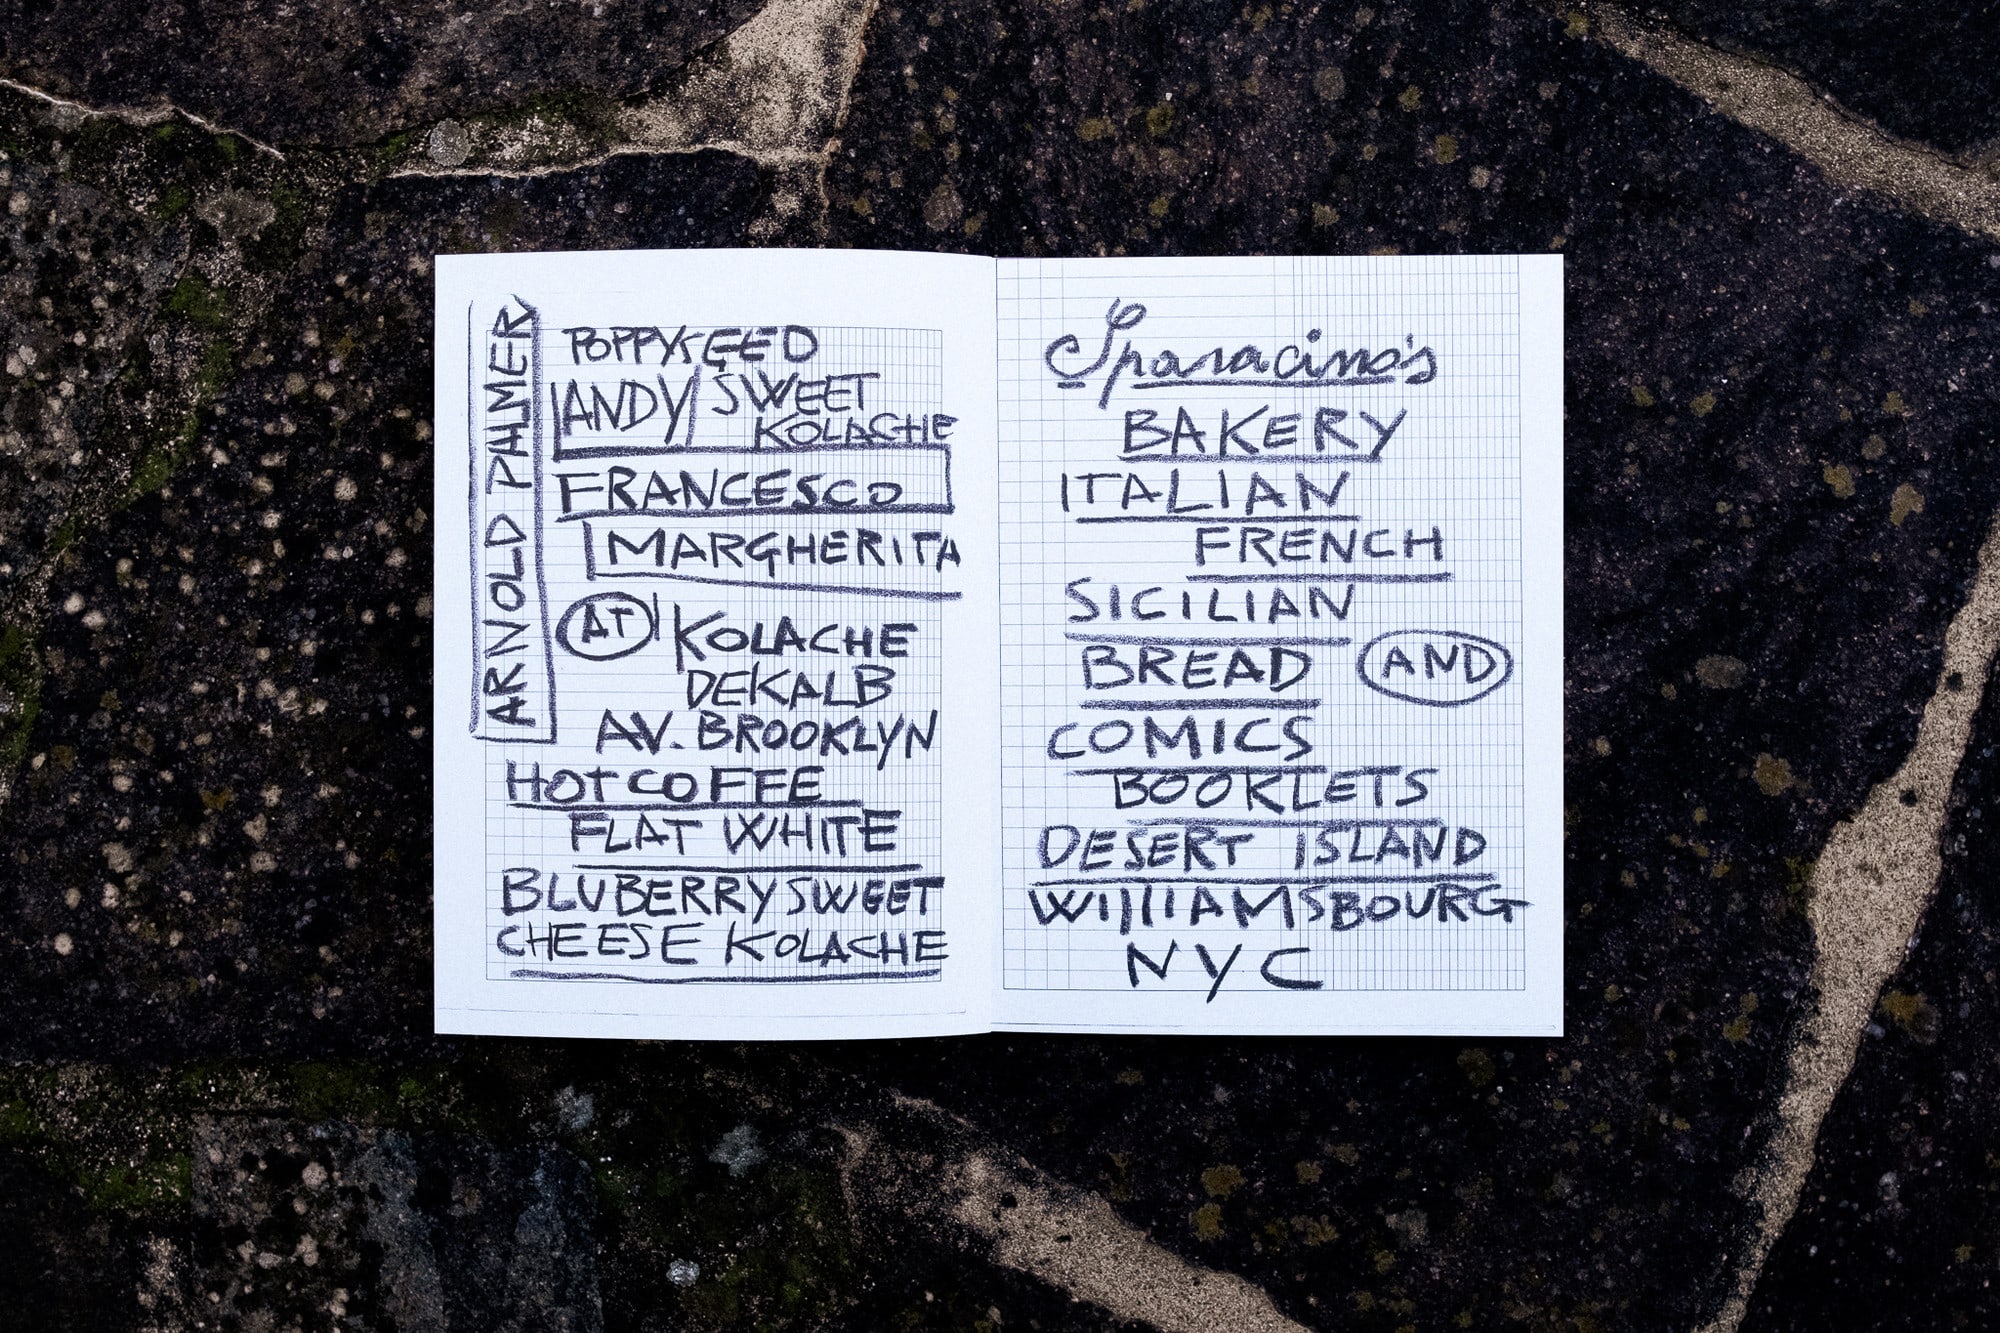 ARNOLD PALMER
POPPYSEED
ANDY SWEET
KOLACHE
FRANCESCO
MARGHERITA
AT KOLACHE
DEKALB
AV. BROOKLYN
HOT COFFEE
FLAT WHITE
BLUBERRY SWEET
CHEESE KOLACHE
Sparacino's
BAKERY
ITALIAN
FRENCH
SICILIAN
BREAD AND
COMICS
BOOKLETS
DESERT ISLAND
WILLIAMSBOURG
NYC